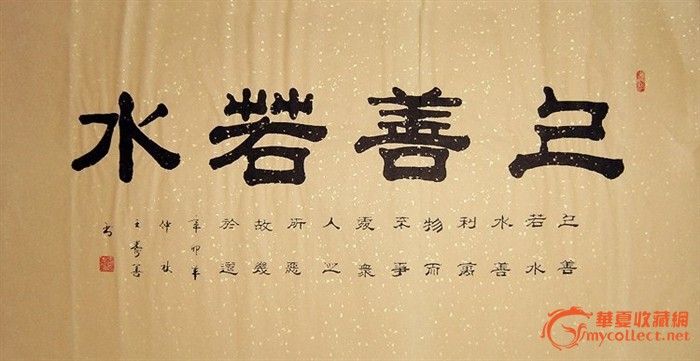 上善若水
上善
若水
水善
利萬
物而
不爭
處衆
人之
所惡
故幾
於道
辛卯年
仲秋
華夏收藏網
mycollect.net